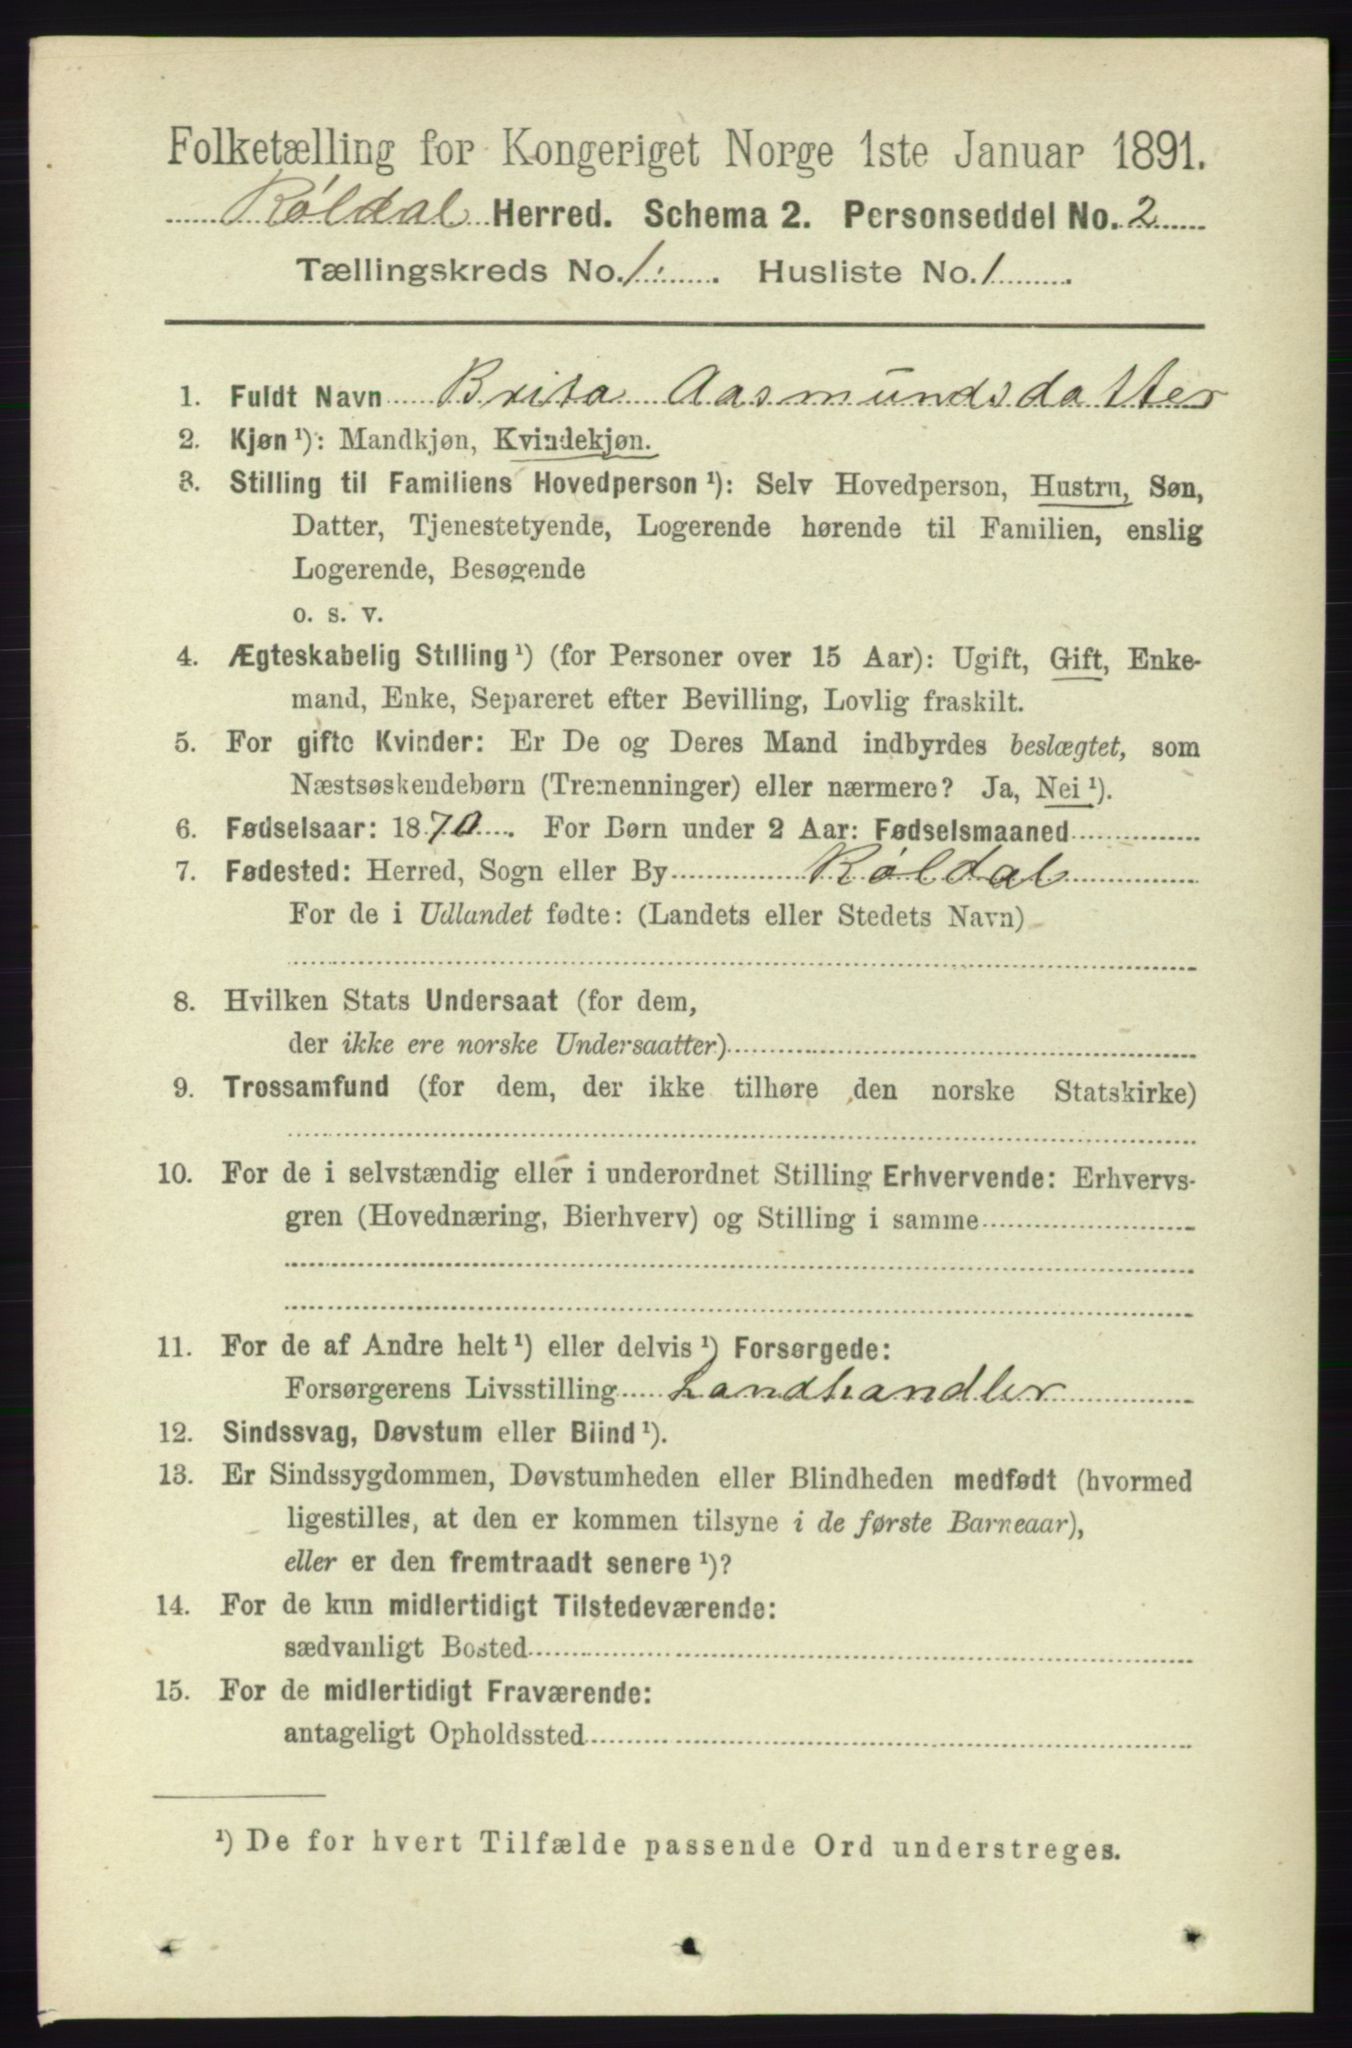 Folketælling for Kongeriget Norge 1ste Januar 1891.
Röldal Herred. Schema 2. Personseddel No. 2
Tællingskreds No. 1. Husliste No. 1
1. Fuldt Navn Brita Aasmundsdatter
2. Kjøn ¹): Mandkjøn, Kvindekjøn.
3. Stilling til Familiens Hovedperson ¹): Selv Hovedperson, Hustru, Søn,
Datter, Tjenestetyende, Logerende hørende til Familien, enslig
Logerende, Besøgende
o. s. v.
4. Ægteskabelig Stilling ¹) (for Personer over 15 Aar): Ugift, Gift, Enke-
mand, Enke, Separeret efter Bevilling, Lovlig fraskilt.
5. For gifte Kvinder: Er De og Deres Mand indbyrdes beslægtet, som
Næstsøskendebørn (Tremenninger) eller nærmere? Ja, Nei ¹).
6. Fødselsaar: 1870. For Børn under 2 Aar: Fødselsmaaned
7. Fødested: Herred, Sogn eller By Röldal
For de i Udlandet fødte: (Landets eller Stedets Navn)
8. Hvilken Stats Undersaat (for dem,
der ikke ere norske Undersaatter)
9. Trossamfund (for dem, der ikke tilhøre den norske Statskirke)
10. For de i selvstændig eller i underordnet Stilling Erhvervende: Erhvervs-
gren (Hovednæring, Bierhverv) og Stilling i samme
11. For de af Andre helt ¹) eller delvis ¹) Forsørgede:
Forsørgerens Livsstilling Landhandler
12. Sindssvag, Døvstum eller Blind ¹).
13. Er Sindssygdommen, Døvstumheden eller Blindheden medfødt (hvormed
ligestilles, at den er kommen tilsyne i de første Barneaar),
eller er den fremtraadt senere ¹)?
14. For de kun midlertidigt Tilstedeværende:
sædvanligt Bosted
15. For de midlertidigt Fraværende:
antageligt Opholdssted
¹) De for hvert Tilfælde passende Ord understreges.